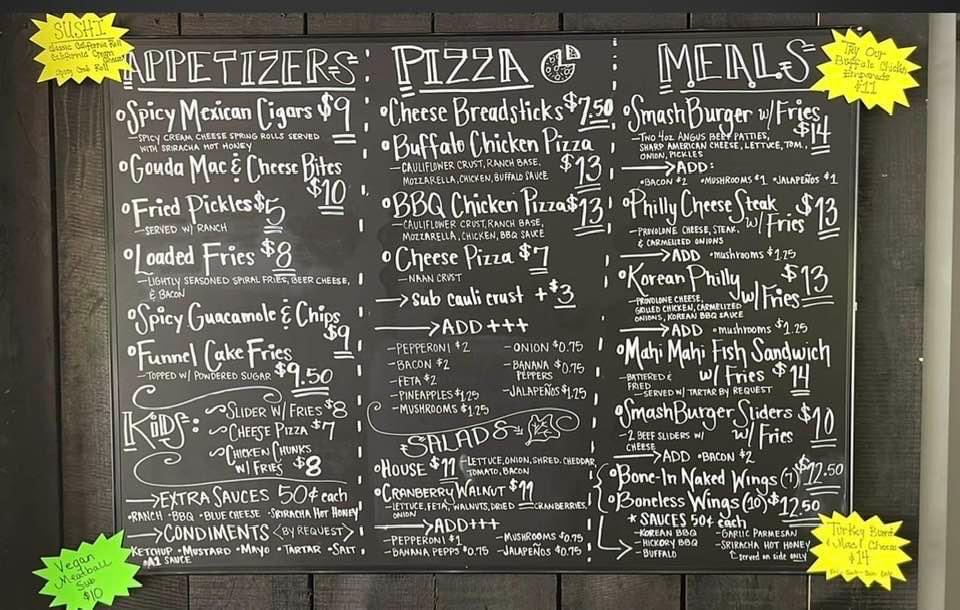 SUSHI
Classic California Roll
California Cream
Spicy Crab Roll
APPETIZERS
Spicy Mexican Cigars $9
-SPICY CREAM CHEESE SPRING ROLLS SERVED
WITH SRIRACHA HOT HONEY
Gouda Mac & Cheese Bites
$10
Fried Pickles $5
-SERVED W/ RANCH
Loaded Fries $8
-LIGHTLY SEASONED SPIRAL FRIES, BEER CHEESE,
& BACON
Spicy Guacamole & Chips
$9
Funnel Cake Fries
-TOPPED W/ POWDERED SUGAR $9.50
KIDS:
~SLIDER W/ FRIES $8
~CHEESE PIZZA $7
~CHICKEN CHUNKS
W/ FRIES $8
→EXTRA SAUCES 50¢ each
•RANCH •BBQ •BLUE CHEESE •SRIRACHA HOT HONEY
→CONDIMENTS <BY REQUEST>
KETCHUP •MUSTARD •MAYO •TARTAR •SALT
•A1 SAUCE
Vegan
Meatball
Sub
$10
PIZZA
Cheese Breadsticks $7.50
Buffalo Chicken Pizza
-CAULIFLOWER CRUST, RANCH BASE,
MOZZARELLA, CHICKEN, BUFFALO SAUCE $13
BBQ Chicken Pizza $13
-CAULIFLOWER CRUST, RANCH BASE,
MOZZARELLA, CHICKEN, BBQ SAUCE
Cheese Pizza $7
-NAAN CRUST
→sub cauli crust +$3
→ADD +++
-PEPPERONI $2
-BACON $2
-FETA $2
-PINEAPPLES $1.25
-MUSHROOMS $1.25
-ONION $0.75
-BANANA PEPPERS $0.75
-JALAPEÑOS $1.25
SALADS
HOUSE $11 -LETTUCE, ONION, SHRED. CHEDDAR,
TOMATO, BACON
CRANBERRY WALNUT $11
-LETTUCE, FETA, WALNUTS, DRIED CRANBERRIES,
ONION
→ADD+++
-PEPPERONI $1
-BANANA PEPPS $0.75
-MUSHROOMS $0.75
-JALAPEÑOS $0.75
MEALS
Try Our
Buffalo Chicken
Empanada
$11
SmashBurger w/ Fries
$14
-TWO 4OZ ANGUS BEEF PATTIES,
SHARP AMERICAN CHEESE, LETTUCE, TOM.,
ONION, PICKLES
→ADD:
•BACON $2 •MUSHROOMS $1 •JALAPEÑOS $1
Philly Cheese Steak
w/ Fries $13
-PROVOLONE CHEESE, STEAK,
& CARMELIZED ONIONS
→ADD •mushrooms $1.25
Korean Philly
w/ Fries $13
-PROVOLONE CHEESE,
GRILLED CHICKEN, CARMELIZED
ONIONS, KOREAN BBQ SAUCE
→ADD •mushrooms $1.25
Mahi Mahi Fish Sandwich
w/ Fries $14
-BATTERED &
FRIED
-SERVED W/ TARTAR BY REQUEST
SmashBurger Sliders $10
w/ Fries
-2 BEEF SLIDERS W/
CHEESE
→ADD •BACON $2
Bone-In Naked Wings (7) $12.50
Boneless Wings (10) $12.50
* SAUCES 50¢ each
-KOREAN BBQ
-HICKORY BBQ
-BUFFALO
-GARLIC PARMESAN
-SRIRACHA HOT HONEY
served on side ONLY
Turkey
Mac
$14